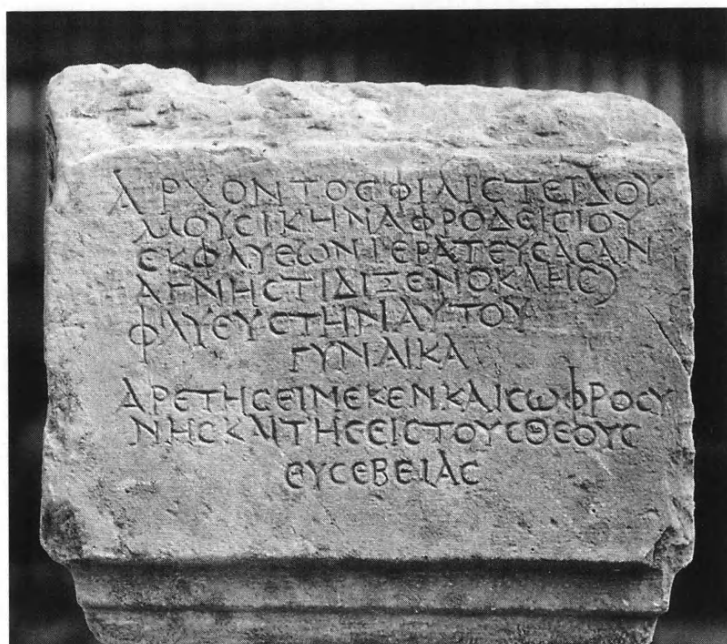 ΑΡΧΟΝΤΟϹΦΙΛΙϹΤΕΙΔΟΥ
ΜΟΥϹΙΚΗΝΑΦΡΟΔΕΙϹΙΟΥ
ΕΚΦΛΥΕΩΝΙΕΡΑΤΕΥϹΑϹΑΝ
ΑΓΝΗϹΤΙΔΙΞΕΝΟΚΛΗϹ)
ΦΛΥΕΥϹΤΗΝΑΥΤΟΥ
ΓΥΝΑΙΚΑ
ΑΡΕΤΗϹΕΙΝΕΚΕΝΚΑΙϹΩΦΡΟϹΥ
ΝΗϹΚΑΙΤΗϹΕΙϹΤΟΥϹΘΕΟΥϹ
ΕΥϹΕΒΕΙΑϹ